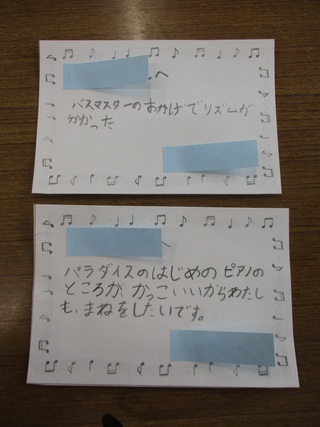 へ
バスマスターのおかげでリズムが
分かった
へ
パラダイスのはじめのピアノの
ところが、かっこいいからわたし
も、まねをしたいです。